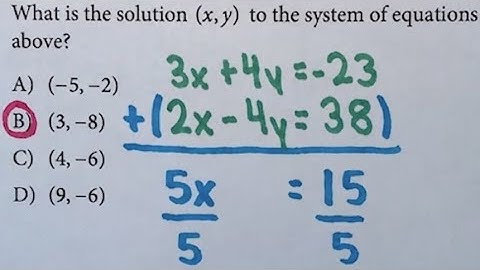 What is the solution (x, y) to the system of equations
above?
A) (−5, −2)
B) (3, −8)
C) (4, −6)
D) (9, −6)
3x + 4y = -23
+(2x - 4y = 38)
5x = 15
5 5